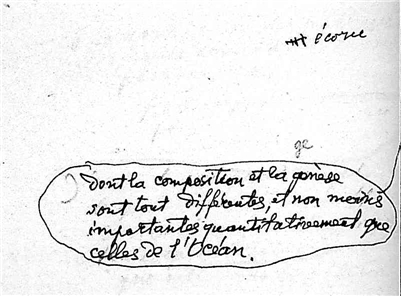 écorce
ge
dont la composition et la genèse
sont tout différentes, et non moins
importantes quantitativement que
celles de l'Océan.